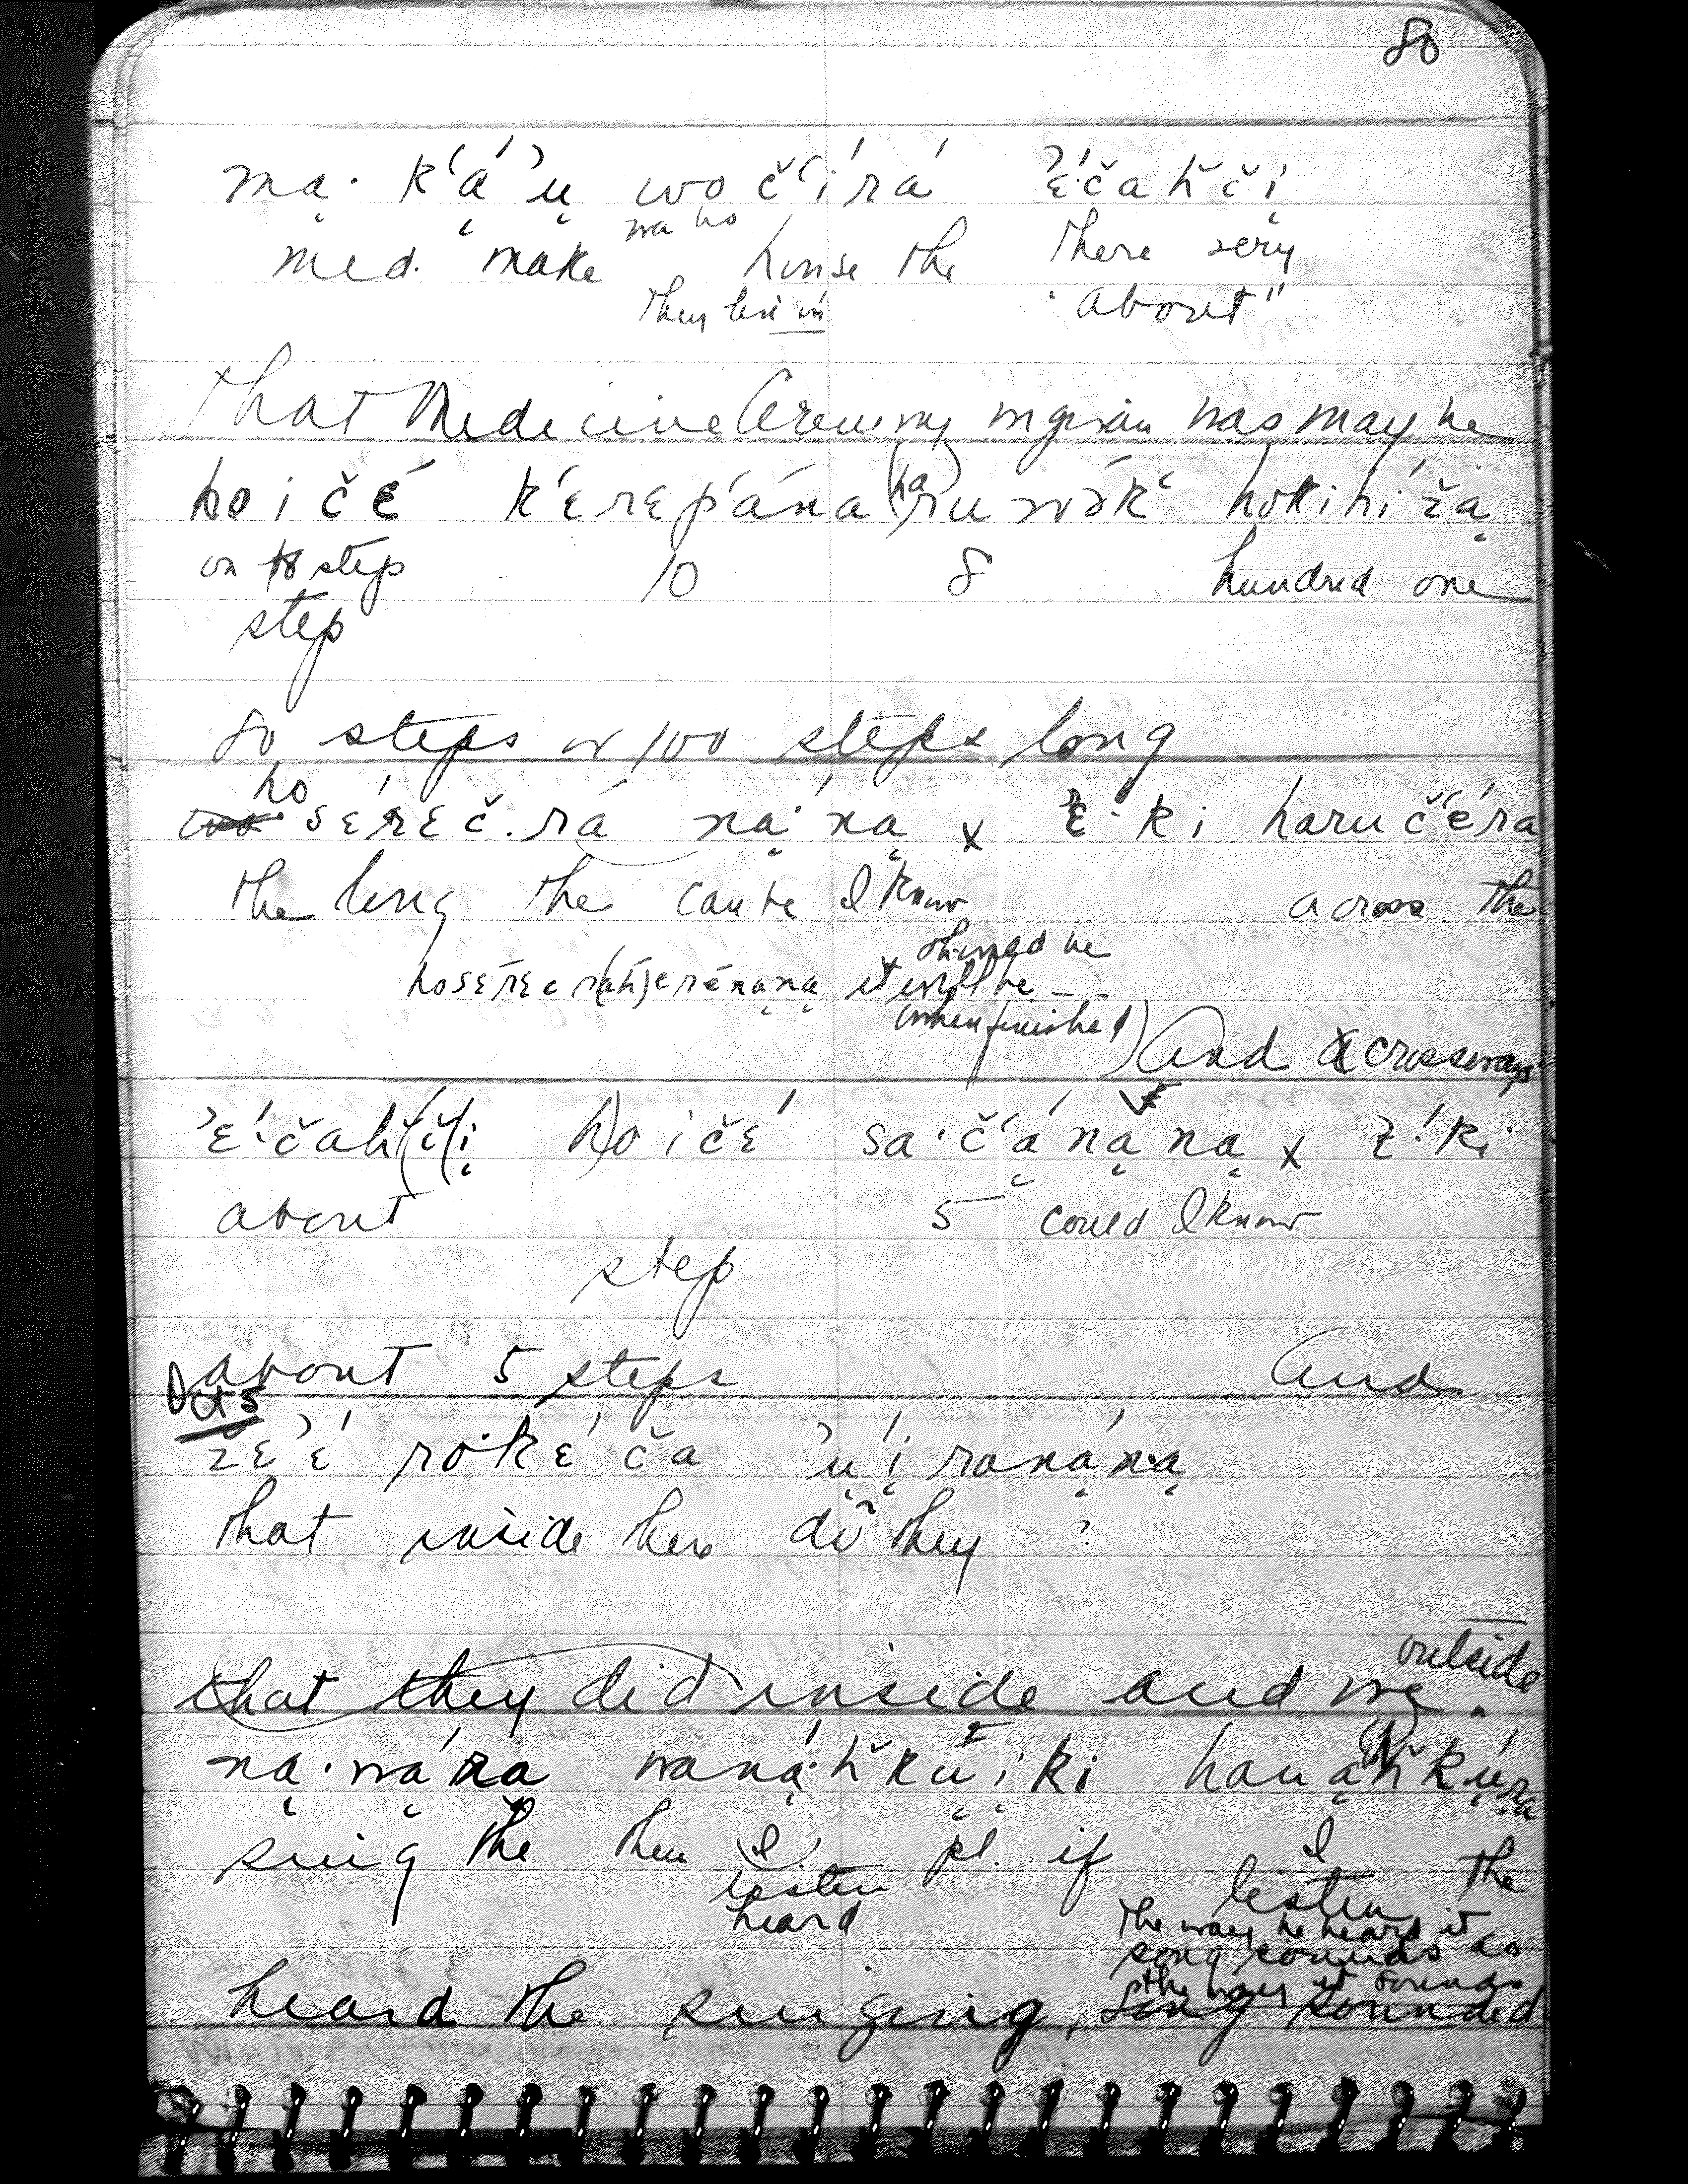 80
mą· k'ą́'ų woč'írá 'ɛ́·čaȟčį
wa ho
med. make house the there very
they live in "about"
That Medicine Ceremony wigwam was maybe
hoičɛ́ k'ɛrɛpána (ha)ruwə́k' hokihížą
on step 10 8 hundred one
step
80 steps or 100 steps long
ho
sɛ́rɛč.rá ną́·ną x ɛ́·ki haruč'éra
the long the can be I know across the
should be
it will be _ _
when finished)
And crossways
'ɛ́·čaȟ(č)į hoičɛ́ sa·č'ą́ną ną x ɛ́·ki
about 5 could I know
step
about 5 steps And
Oct 5
žɛ'ɛ́ ró·kɛ́ ča 'ų́įranáną
that inside there do they ?
outside
that they did inside and we
ną·wą́ra waną́·ȟkųįki haną́ȟkųra
sing the then I pl. if I the
listen listen
heard the way he heard it
song sounds as
the way it sounds
heard the singing, song sounded